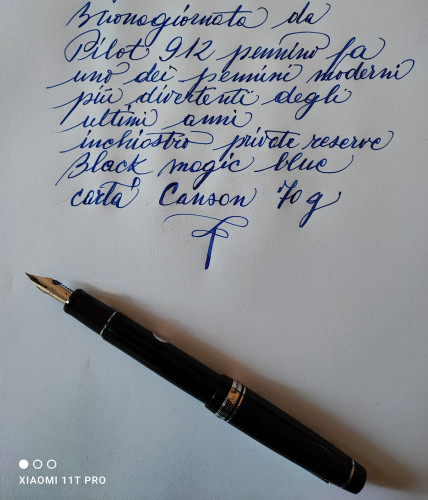 Buonagiornata da
Pilot 912 pennino fa
uno dei pennini moderni
più divertenti degli
ultimi anni
inchiostro private reserve
Black magic blue
carta Canson 70g
XIAOMI 11T PRO